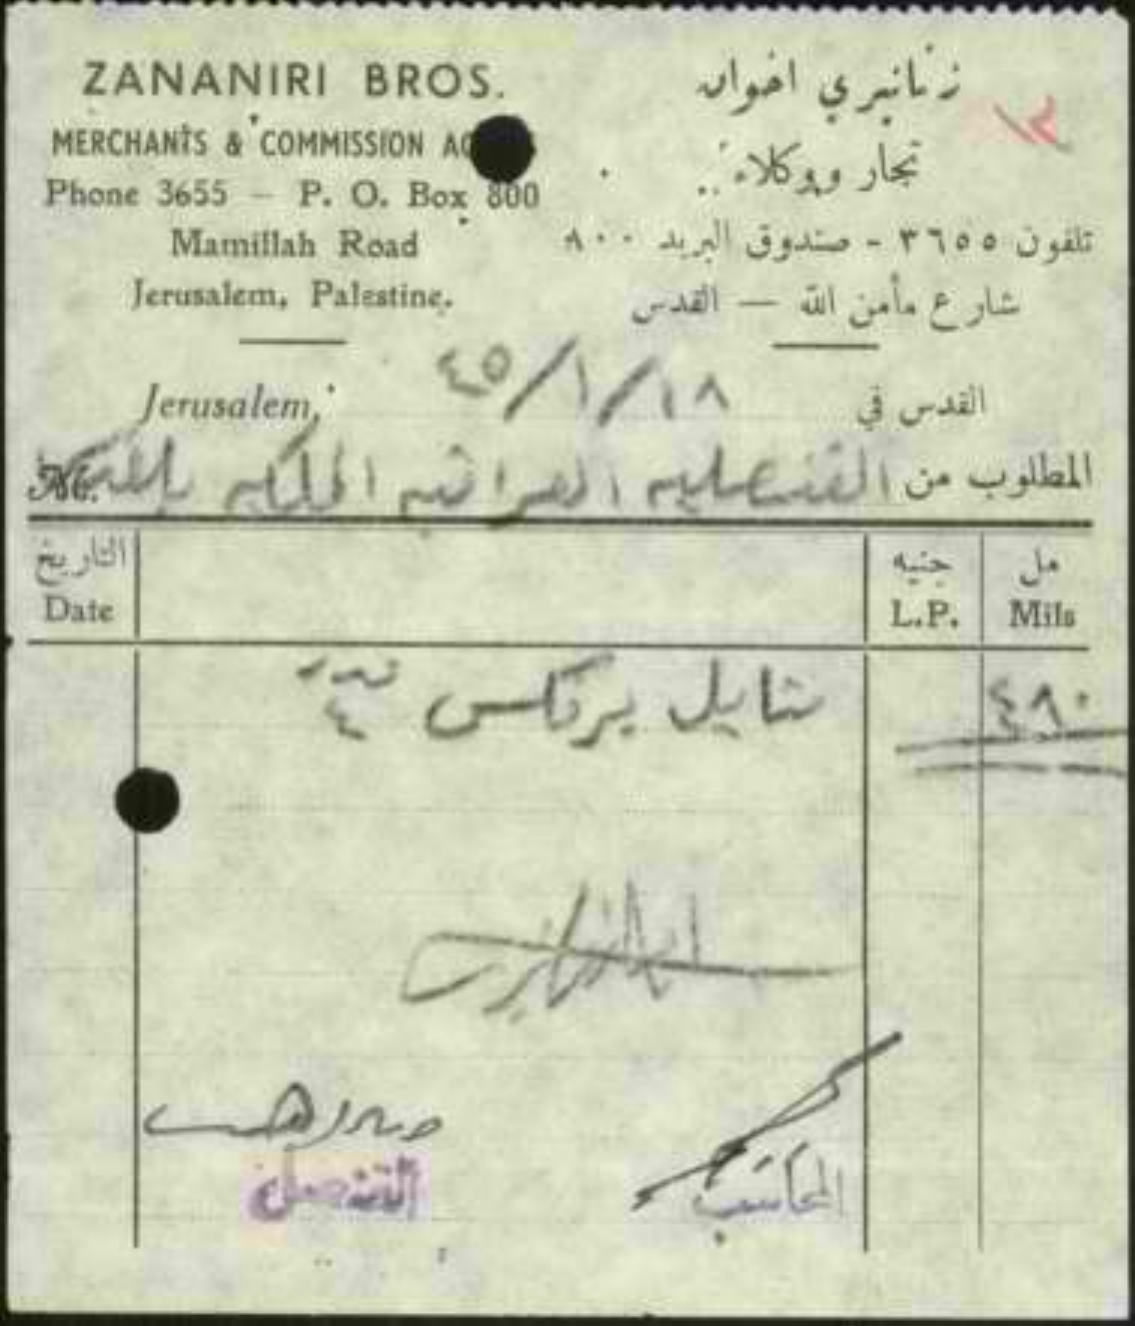 ZANANIRI BROS.
MERCHANTS & COMMISSION
Phone 3655 – P. O. Box 800
Mamillah Road
Jerusalem, Palestine.
زنانيري اخوان
تجار ووكلاء
تلفون ٣٦٥٥ - صندوق البريد ٨٠٠
شارع مأمن الله — القدس
١٣
Jerusalem, ١٨/١/٤٥ القدس في
المطلوب من القنصلية العراقية الملكية بالقدس
No.
التاريخ جنيه مل
Date L.P. Mils
ستايل بركس ٤٨٠
القنصل
المحاسب